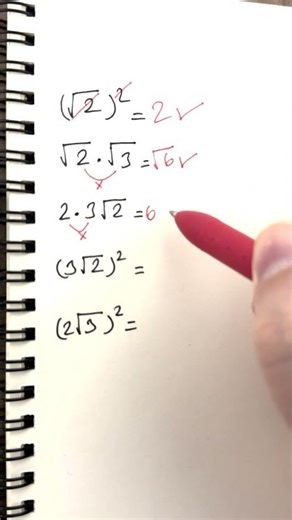 (√2)² = 2 ✓
√2 · √3 = √6 ✓
x
2 · 3√2 = 6
x
(3√2)² =
(2√3)² =